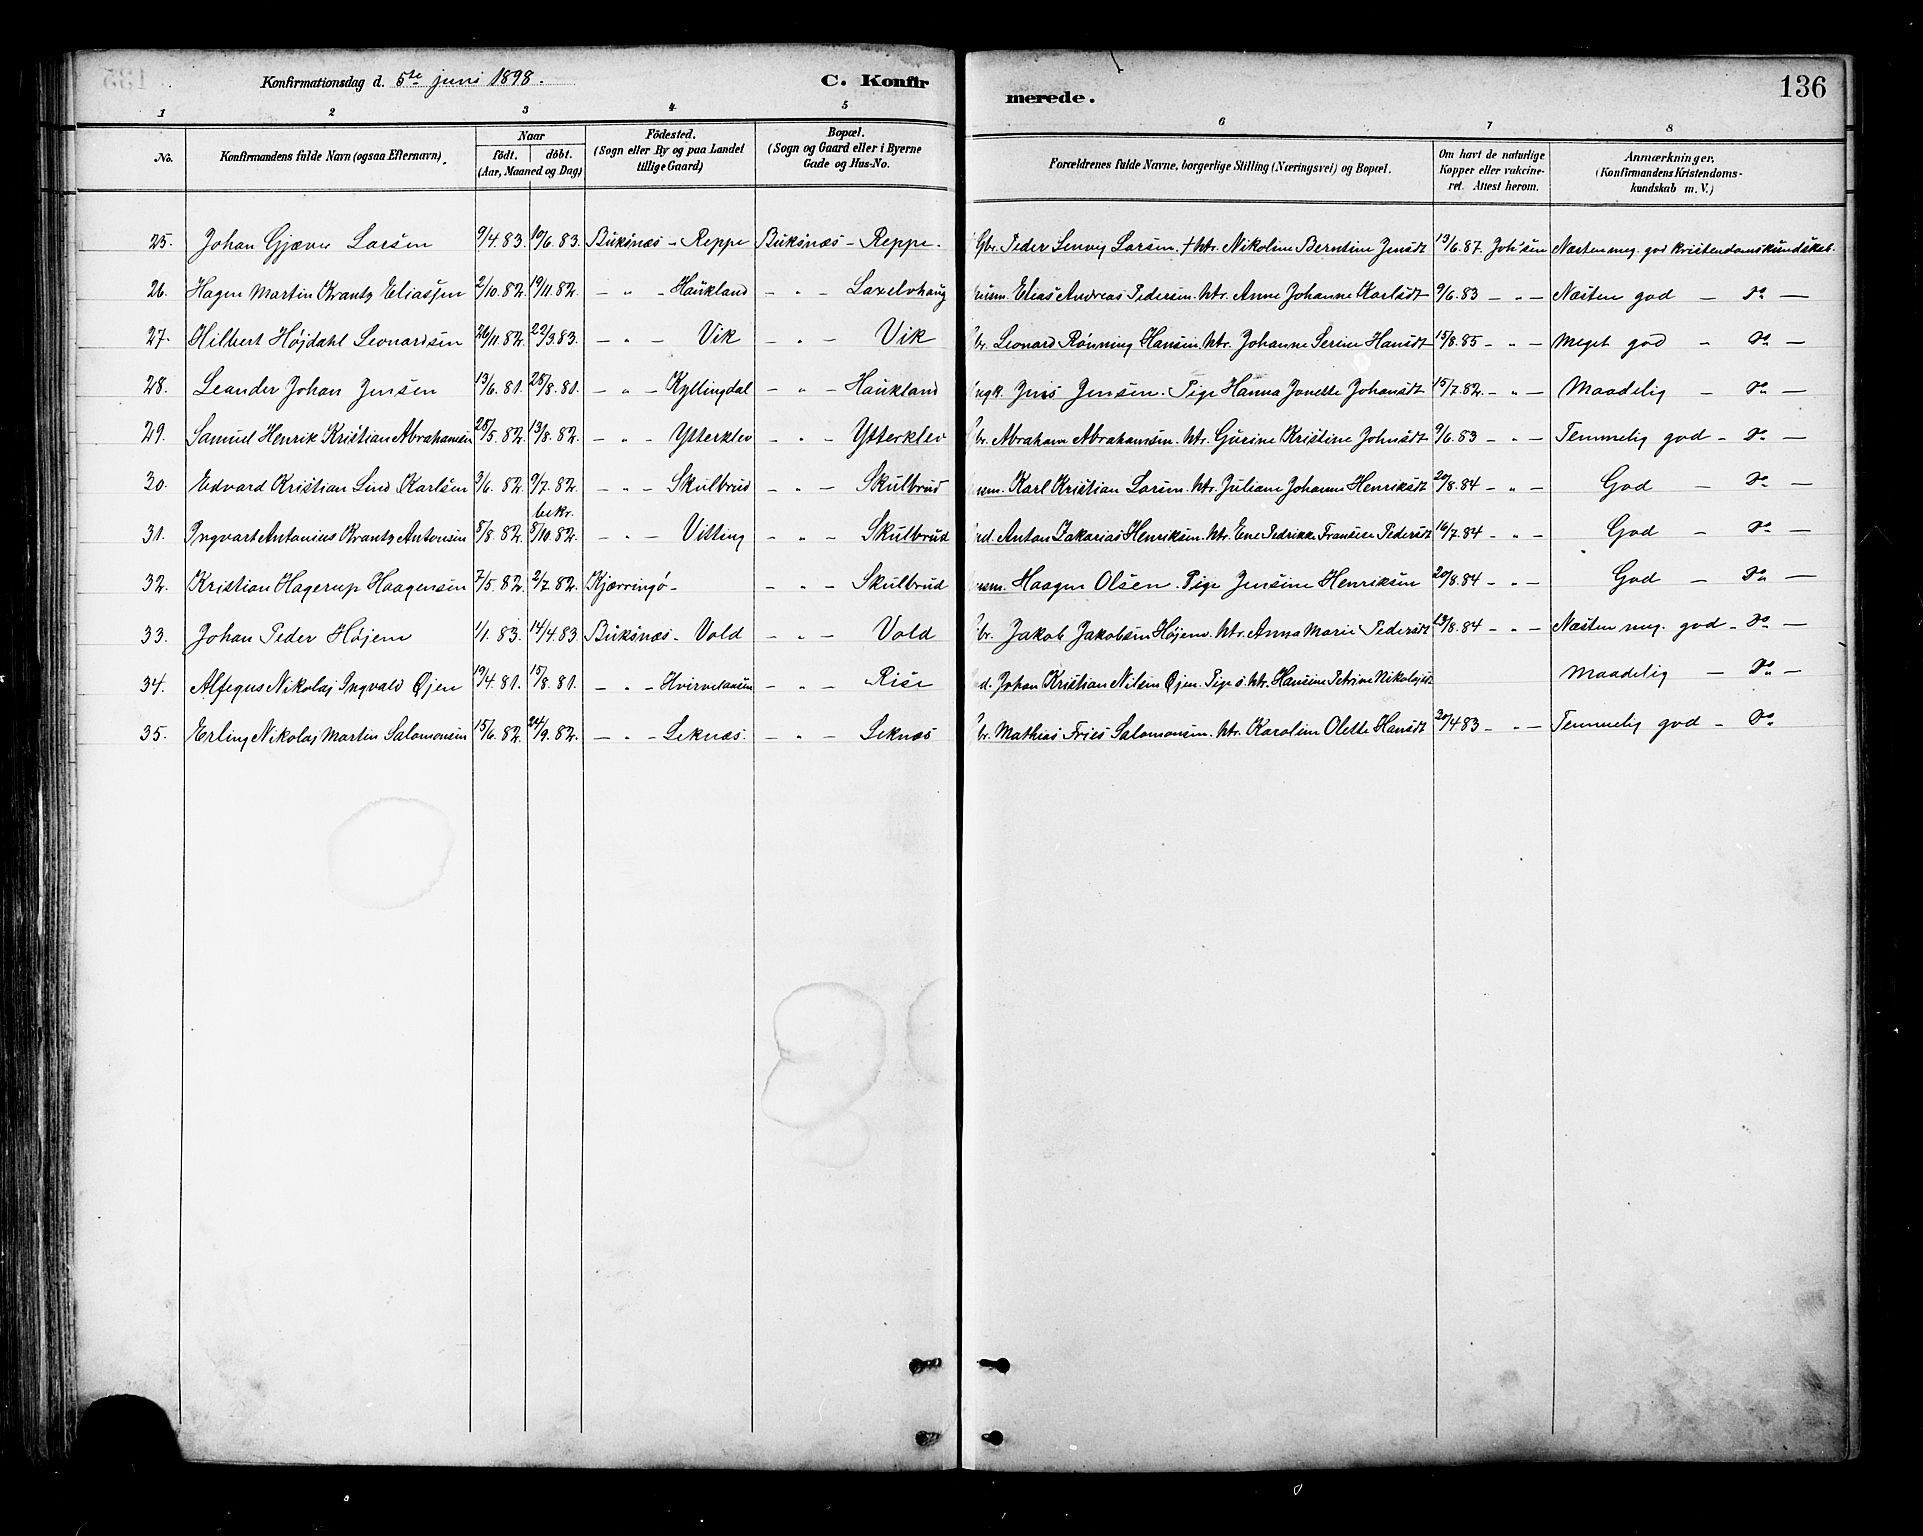 Konfirmationsdag d. 5te juni 1898. C. Konfirmerede. 136
1 2 3 4 5 6 7 8
No. Konfirmandens fulde Navn (ogsaa Efternavn). Naar födt. döbt. (Aar, Maaned og Dag) Födested. (Sogn eller By og paa Landet tillige Gaard) Bopæl. (Sogn og Gaard eller i Byerne Gade og Hus-No. Forældrenes fulde Navne, borgerlige Stilling (Næringsvei) og Bopæl. Om havt de naturlige Kopper eller vakcineret. Attest herom. Anmærkninger. (Konfirmandens Kristendomskundskab m. V.)
25. Johan Gjæver Larsen 9/4.83. 10/6.83. Buksnæs - Reppe Buksnæs - Reppe. Gbr. Peder Senvig Larsen. † Htr. Nikoline Berntine Jensdt 13/6.87. Joh'sen Næsten meg. god kristendomskundskab.
26. Hagen Martin Krantz Eliassen 2/10.82. 19/11.82. - " - Haukland - " - Laxelvhaug Elias Andreas Pedersen. Htr. Anne Johanne Karlsdt 9/6.83 - " - Næsten god - do -
27. Hilbert Højdahl Leonardsen 26/11.82. 22/3.83. - " - Vik - " - Vik br. Leonard Rønning Hansen. Htr. Johanne Serine Hansdt 15/8.85 - " - Meget god - do -
28. Leander Johan Jensen 13/6.81. 28/8.81. - " - Kyllingdal - " - Haukland ugk. Jens Jensen. Pige Hanna Jonette Johansdt 15/7.82. - " - Maadelig - do -
29. Samuel Henrik Kristian Abrahamsen 28/5.82. 13/8.82. - " - Ytterklev - " - Ytterklev br. Abraham Abrahamsen. Htr. Gurine Kristine Johnsdt 9/6.83 - " - Temmelig god - do -
30. Edvard Kristian Lind Karlsen 3/6.82. 9/7.82. - " - Skulbrud - " - Skulbrud Karl Kristian Larsen. Htr. Juliane Johanne Henriksdt 20/8.84 - " - God - do -
31. Ingvart Antonius Krantz Antonsen 8/8.82. bekr. 8/10.82. - " - Vitting - " - Skulbrud Anton Zakarias Henriksen. Htr. Ene Pedrikke Fransese Pedersdt 16/7.84 - " - God - do -
32. Kristian Hagerup Haagensen 7/5.82. 2/7.82. Kjærringö - - " - Skulbrud Haagen Olsen. Pige Jensine Henriksen 20/8.84 - " - God - do -
33. Johan Peder Højem 1/1.83. 14/4.83. Buksnæs - Vold - " - Vold br. Jakob Jakobsen Højem. Htr. Anna Marie Pedersdt 13/8.84 - " - Næsten meg. god - do -
34. Alfegus Nikolaj Ingvald Øjen 19/4.81. 15/8.81. - " - - " - Rise d. Johan Kristian Nilsen Øjen. Pige o. Htr. Hansine Petrine Nikolajsdt Maadelig - do -
35. Erling Nikolaj Martin Salomonsen 15/6.82. 24/9.82. - " - Leknæs. - " - Leknæs br. Mathias Fries Salomonsen. Htr. Karoline Olette Hansdt 20/4 83 - " - Temmelig god - do